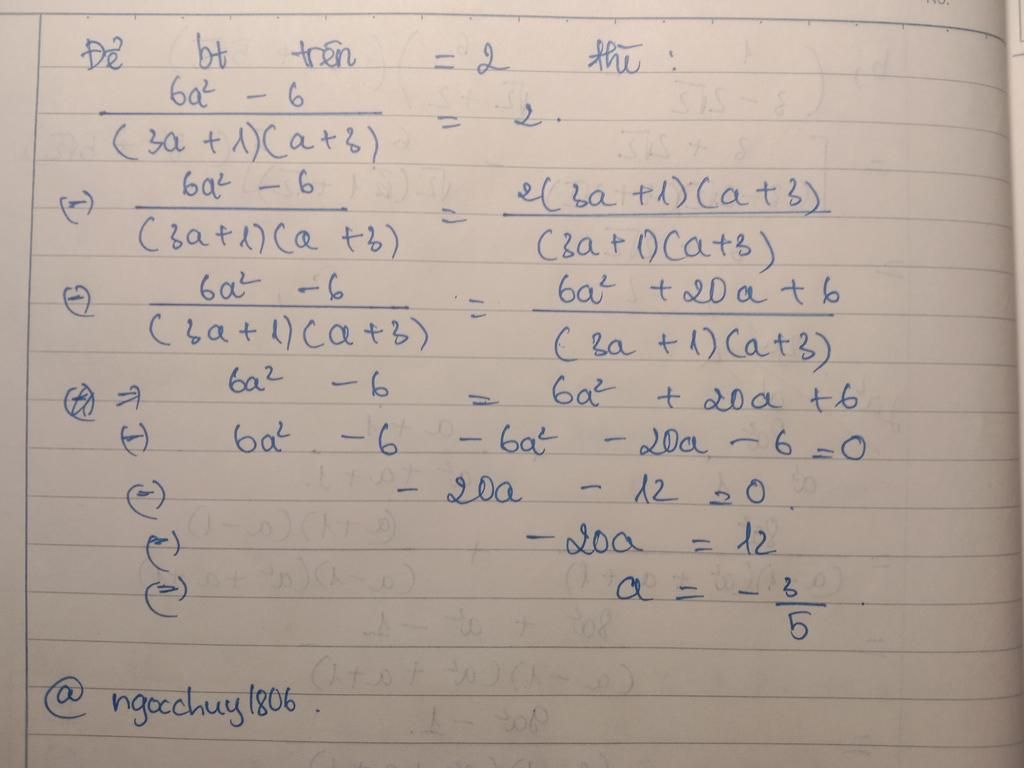 Để bt trên = 2 thì :
6a² - 6 / (3a + 1)(a + 3) = 2.
(=) 6a² - 6 / (3a+1)(a +3) = 2(3a+1)(a+3) / (3a+1)(a+3)
(=) 6a² - 6 / (3a+1)(a+3) = 6a² + 20a + 6 / (3a +1)(a+3)
=) 6a² - 6 = 6a² + 20a + 6
(=) 6a² - 6 - 6a² - 20a - 6 = 0
(=) - 20a - 12 = 0
(=) - 20a = 12
(=) a = - 3/5 .
@ ngocchuy1806 .